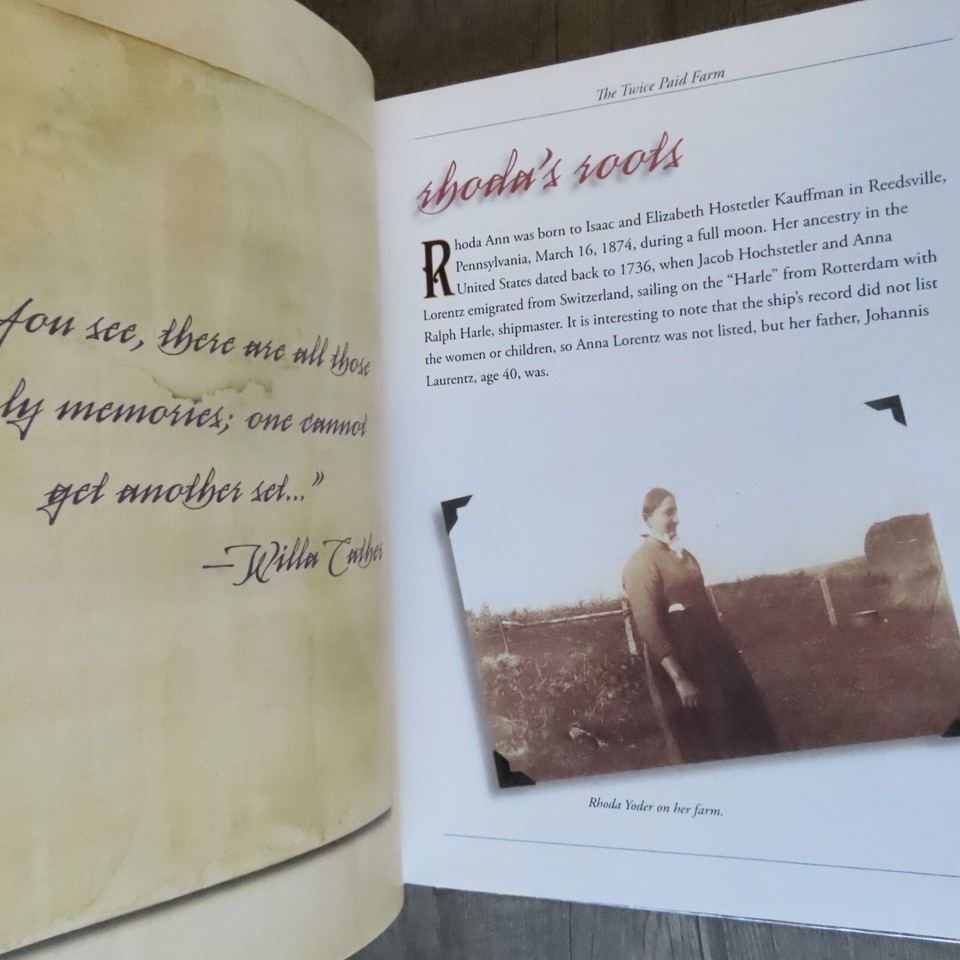 You see, there are all those
memories; one cannot
get another set..."
—Willa Cather
The Twice Paid Farm
rhoda's roots
Rhoda Ann was born to Isaac and Elizabeth Hostetler Kauffman in Reedsville,
Pennsylvania, March 16, 1874, during a full moon. Her ancestry in the
United States dated back to 1736, when Jacob Hochstetler and Anna
Lorentz emigrated from Switzerland, sailing on the “Harle” from Rotterdam with
Ralph Harle, shipmaster. It is interesting to note that the ship's record did not list
the women or children, so Anna Lorentz was not listed, but her father, Johannis
Laurentz, age 40, was.
Rhoda Yoder on her farm.